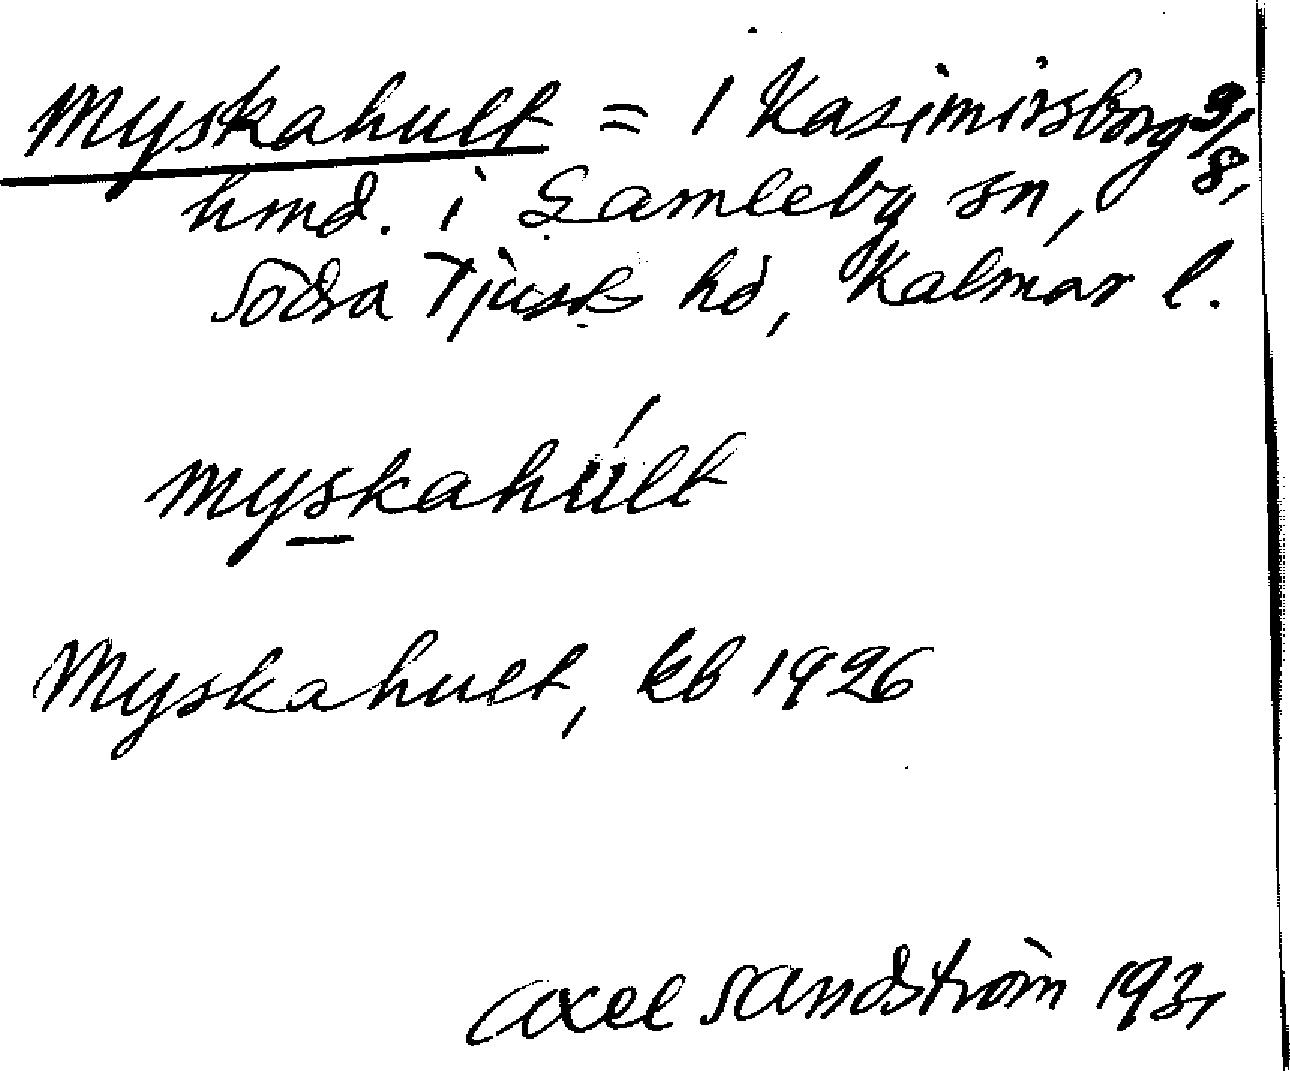 Myskahult = 1 Kasimirsborg 9/8,
hmd. i Gamleby sn,
Södra Tjust hd, Kalmar l.
myskahúlt
Myskahult, kb 1926
Axel Sandström 1931